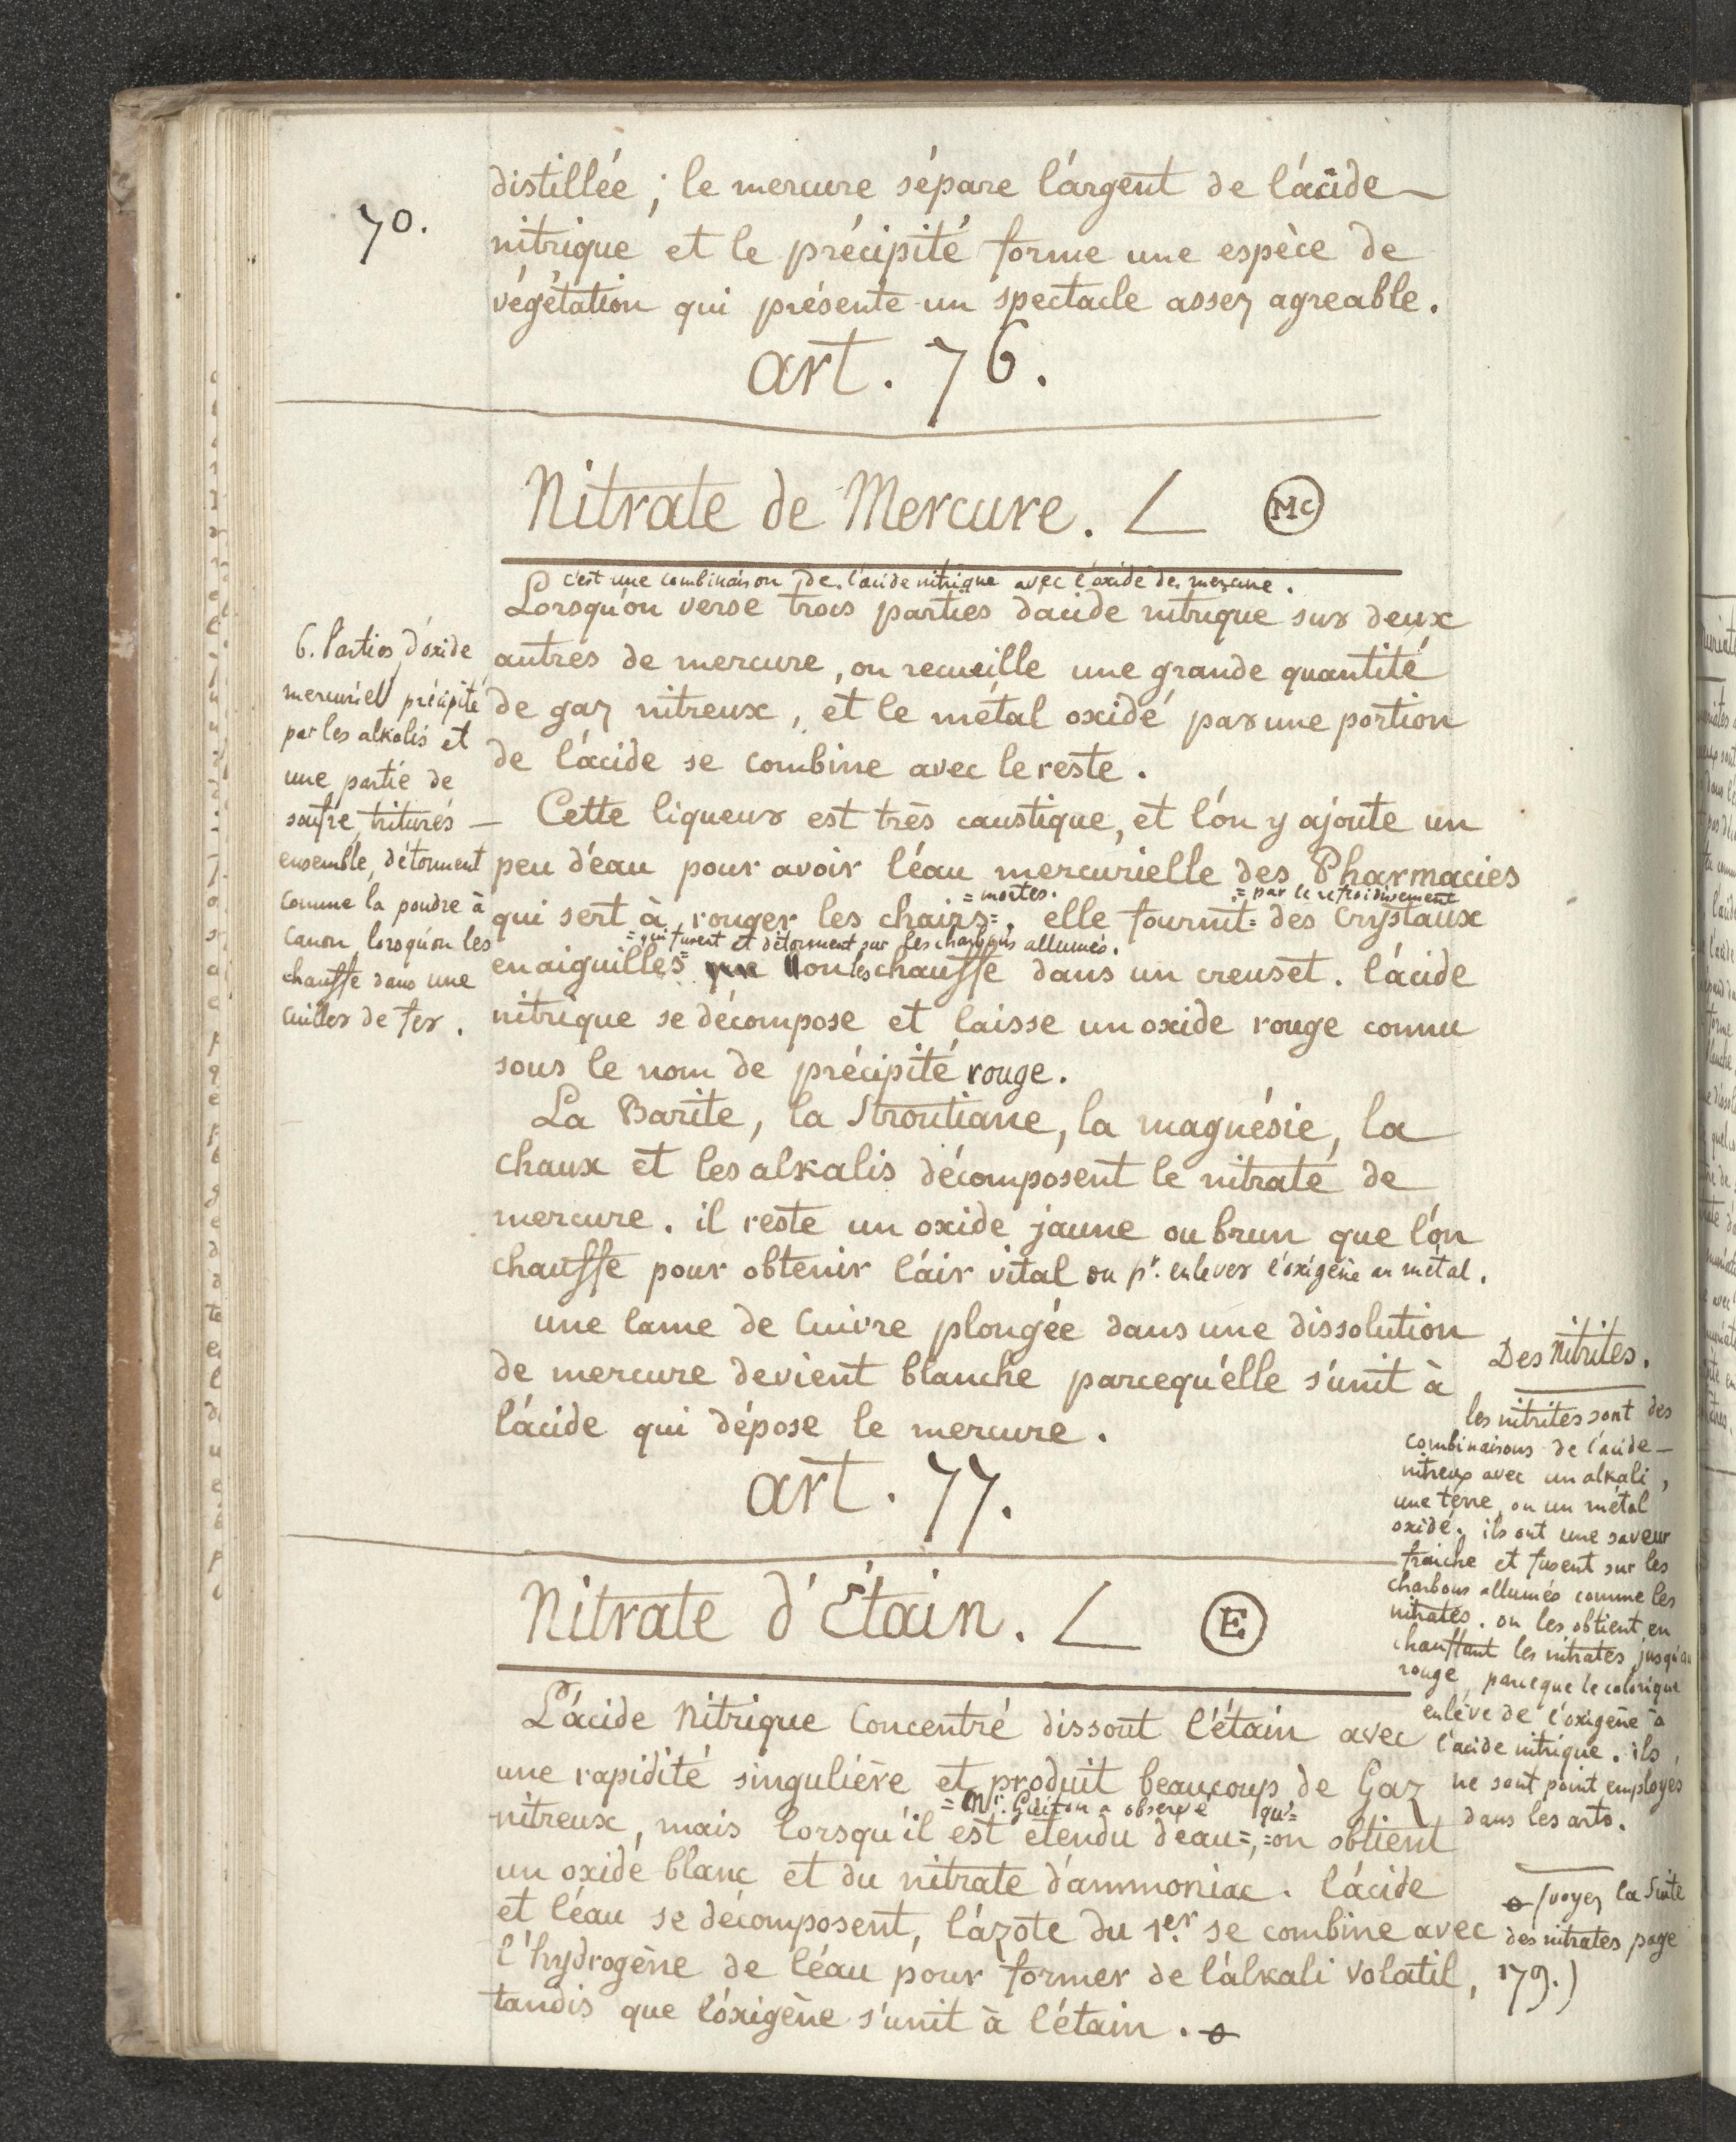 70.
distillée, le mercure sépare l'argent de l'acide
nitrique et le précipité forme une espèce de
végétation qui présente un spectacle assez agreable.
art. 76.
Nitrate de Mercure. Mc
c'est une combinaison de l'acide nitrique avec l'oxide de mercure.
Lorsqu'on verse trois parties d'acide nitrique sur deux
autres de mercure, on recueille une grande quantité
de gaz nitreux, et le métal oxidé par une portion
de l'acide se combine avec le reste.
Cette liqueur est très caustique, et l'on y ajoute un
peu d'eau pour avoir l'eau mercurielle des Pharmacies
= mortes. = par le refroidissement
qui sert à rouger les chairs=, elle fournit= des crystaux
= qui fusent et détonnent sur les charbons allumés.
en aiguilles= l'on les chauffe dans un creuset. l'acide
nitrique se décompose et laisse un oxide rouge connu
sous le nom de précipité rouge.
La Barite, la Strontiane, la magnésie, la
chaux et les alkalis décomposent le nitrate de
mercure. il reste un oxide jaune ou brun que l'on
chauffe pour obtenir l'air vital ou pr. enlever l'oxigène au métal.
une lame de Cuivre plongée dans une dissolution
de mercure devient blanche parcequ'elle s'unit à
l'acide qui dépose le mercure.
6. Parties d'oxide
mercuriel précipité
par les alkalis et
une partie de
soufre, triturés
ensemble, détonnent
comme la poudre à
Canon, lorsqu'on les
chauffe dans une
Cuiller de fer.
art. 77.
Nitrate d'Étain. E
L'acide Nitrique Concentré dissout l'étain avec
une rapidité singulière et produit beaucoup de Gaz
= Mr. Guiton a observé qu'=
nitreux, mais lorsqu'il est etendu d'eau=, =on obtient
un oxide blanc et du nitrate d'ammoniac. l'acide
et l'eau se décomposent, l'azote du 1er. se combine avec
l'hydrogène de l'eau pour former de l'alkali volatil,
tandis que l'oxigène s'unit à l'étain.
Des Nitrites.
les nitrites sont des
combinaisons de l'acide
nitreux avec un alkali,
une terre, ou un métal
oxidé. ils ont une saveur
fraiche et fusent sur les
charbons allumés comme les
nitrates. on les obtient en
chauffant les nitrates jusqu'au
rouge, parceque le calorique
enlève de l'oxigène à
l'acide nitrique. ils
ne sont point employés
dans les arts.
(voyez la Suite
des nitrates page
179.)